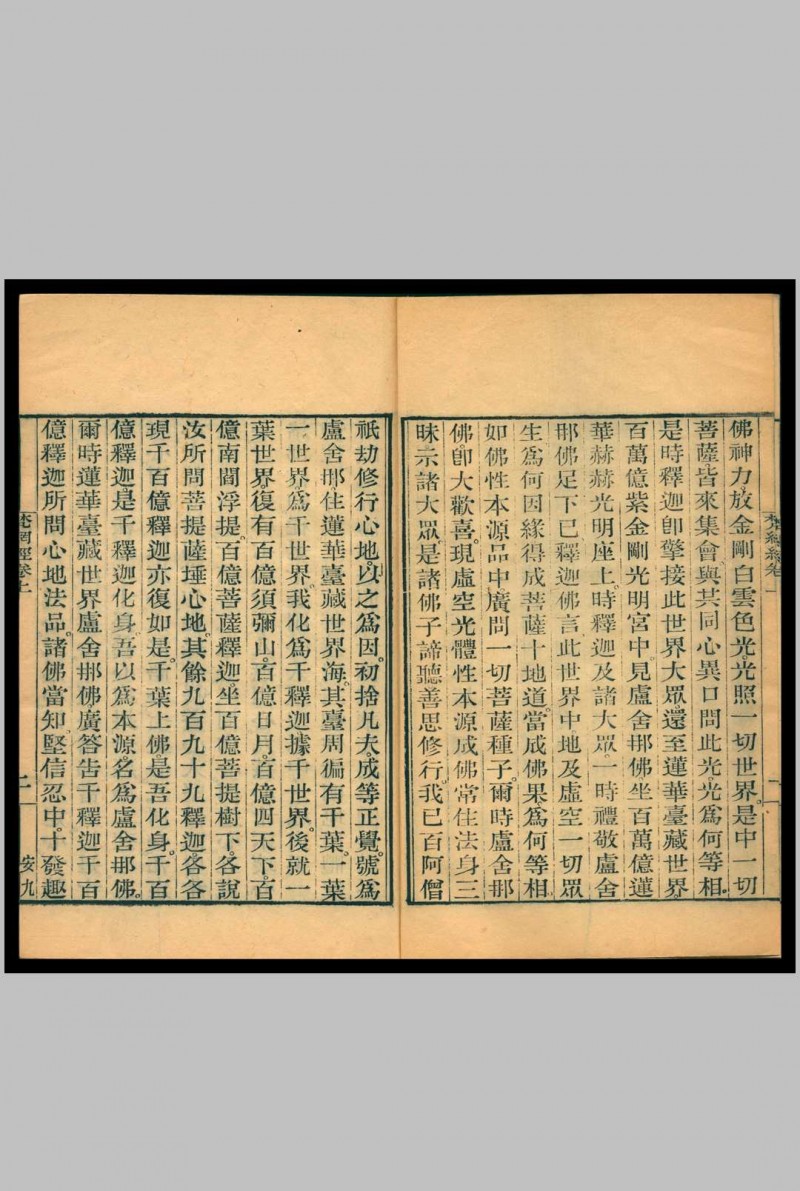 梵網經卷上
二
佛神力放金剛白雲色光光照一切世界。是中一切
菩薩皆來集會。與共同心異口問此光。光爲何等相。
是時釋迦卽擎接此世界大眾。還至蓮華臺藏世界。
百萬億紫金剛光明宮中。見盧舍那佛坐百萬億蓮
華赫赫光明座上。時釋迦及諸大眾。一時禮敬盧舍
那佛足下已。釋迦佛言此世界中地及虛空一切眾
生爲何因緣得成菩薩十地道。當成佛果爲何等相。
如佛性本源品中廣問一切菩薩種子。爾時盧舍那
佛卽大歡喜。現虛空光體性本源成佛常住法身三
昧示諸大眾。是諸佛子諦聽善思修行。我已百阿僧
祇劫修行心地。以之爲因。初捨凡夫。成等正覺。號爲
盧舍那。住蓮華臺藏世界海。其臺周徧有千葉。一葉
一世界爲千世界。我化爲千釋迦據千世界。後就一
葉世界復有百億須彌山。百億日月。百億四天下。百
億南閻浮提。百億菩薩釋迦坐百億菩提樹下。各說
汝所問菩提薩埵心地。其餘九百九十九釋迦各各
現千百億釋迦亦復如是。千葉上佛是吾化身。千百
億釋迦是千釋迦化身。吾以爲本源名爲盧舍那佛。
爾時蓮華臺藏世界盧舍那佛廣答告千釋迦千百
億釋迦所問心地法品。諸佛當知堅信忍中。十發趣
梵網經卷上
二
安九